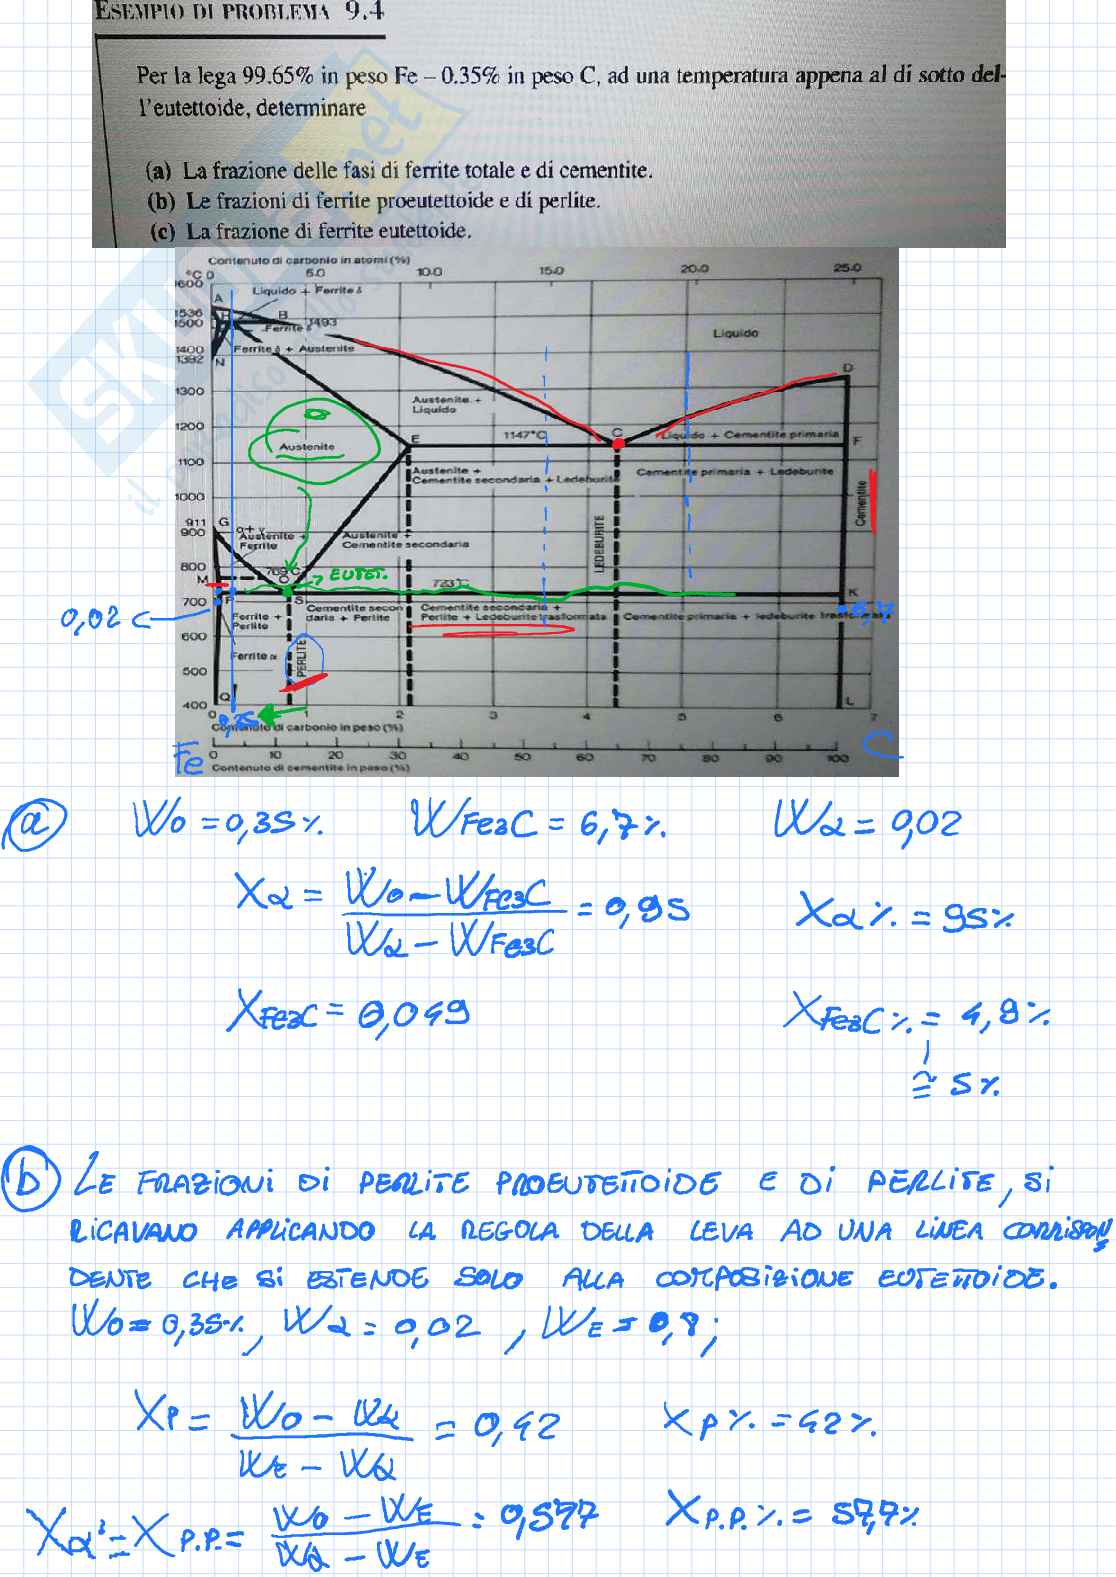 ESEMPIO DI PROBLEMA 9.4
Per la lega 99.65% in peso Fe – 0.35% in peso C, ad una temperatura appena al di sotto del-
l'eutettoide, determinare
(a) La frazione delle fasi di ferrite totale e di cementite.
(b) Le frazioni di ferrite proeutettoide e di perlite.
(c) La frazione di ferrite eutettoide.
Contenuto di carbonio in atomi (%)
°C 0 5.0 10.0 15.0 20.0 25.0
1600
1536
1500
1400
1392
1300
1200
1100
1000
911
900
800
700
600
500
400
A
Liquido + Ferrite δ
B
1493
Ferrite δ
Ferrite δ + Austenite
N
Liquido
D
Austenite +
Liquido
Austenite
E
1147°C
C
Liquido + Cementite primaria
F
Austenite +
Cementite secondaria + Ledeburite
Cementite primaria + Ledeburite
Cementite
LEDEBURITE
G
α+γ
Austenite +
Ferrite
Austenite +
Cementite secondaria
769°C
M
O
→ EUTET.
723°C
P
S
K
0,02
6,7
Ferrite +
Perlite
Cementite secon
daria + Perlite
Cementite secondaria +
Perlite + Ledeburite trasformata
Cementite primaria + ledeburite trasformata
Ferrite α
PERLITE
Q
L
0 1 2 3 4 5 6 7
0,35
Contenuto di carbonio in peso (%)
Fe
C
0 10 20 30 40 50 60 70 80 90 100
Contenuto di cementite in peso (%)
a W0 = 0,35% WFe3C = 6,7% Wα = 0,02
Xα = W0 - WFe3C / Wα - WFe3C = 0,95 Xα% = 95%
XFe3C = 0,049 XFe3C% = 4,9%
≅ 5%
b LE FRAZIONI DI PERLITE PROEUTETTOIDE E DI PERLITE, SI
RICAVANO APPLICANDO LA REGOLA DELLA LEVA AD UNA LINEA CORRISPON
DENTE CHE SI ESTENDE SOLO ALLA COMPOSIZIONE EUTETTOIDE.
W0 = 0,35%, Wα = 0,02 , WE = 0,8;
XP = W0 - Wα / WE - Wα = 0,42 XP% = 42%
Xα' = XP.P. = W0 - WE / Wα - WE = 0,577 XP.P.% = 57,7%